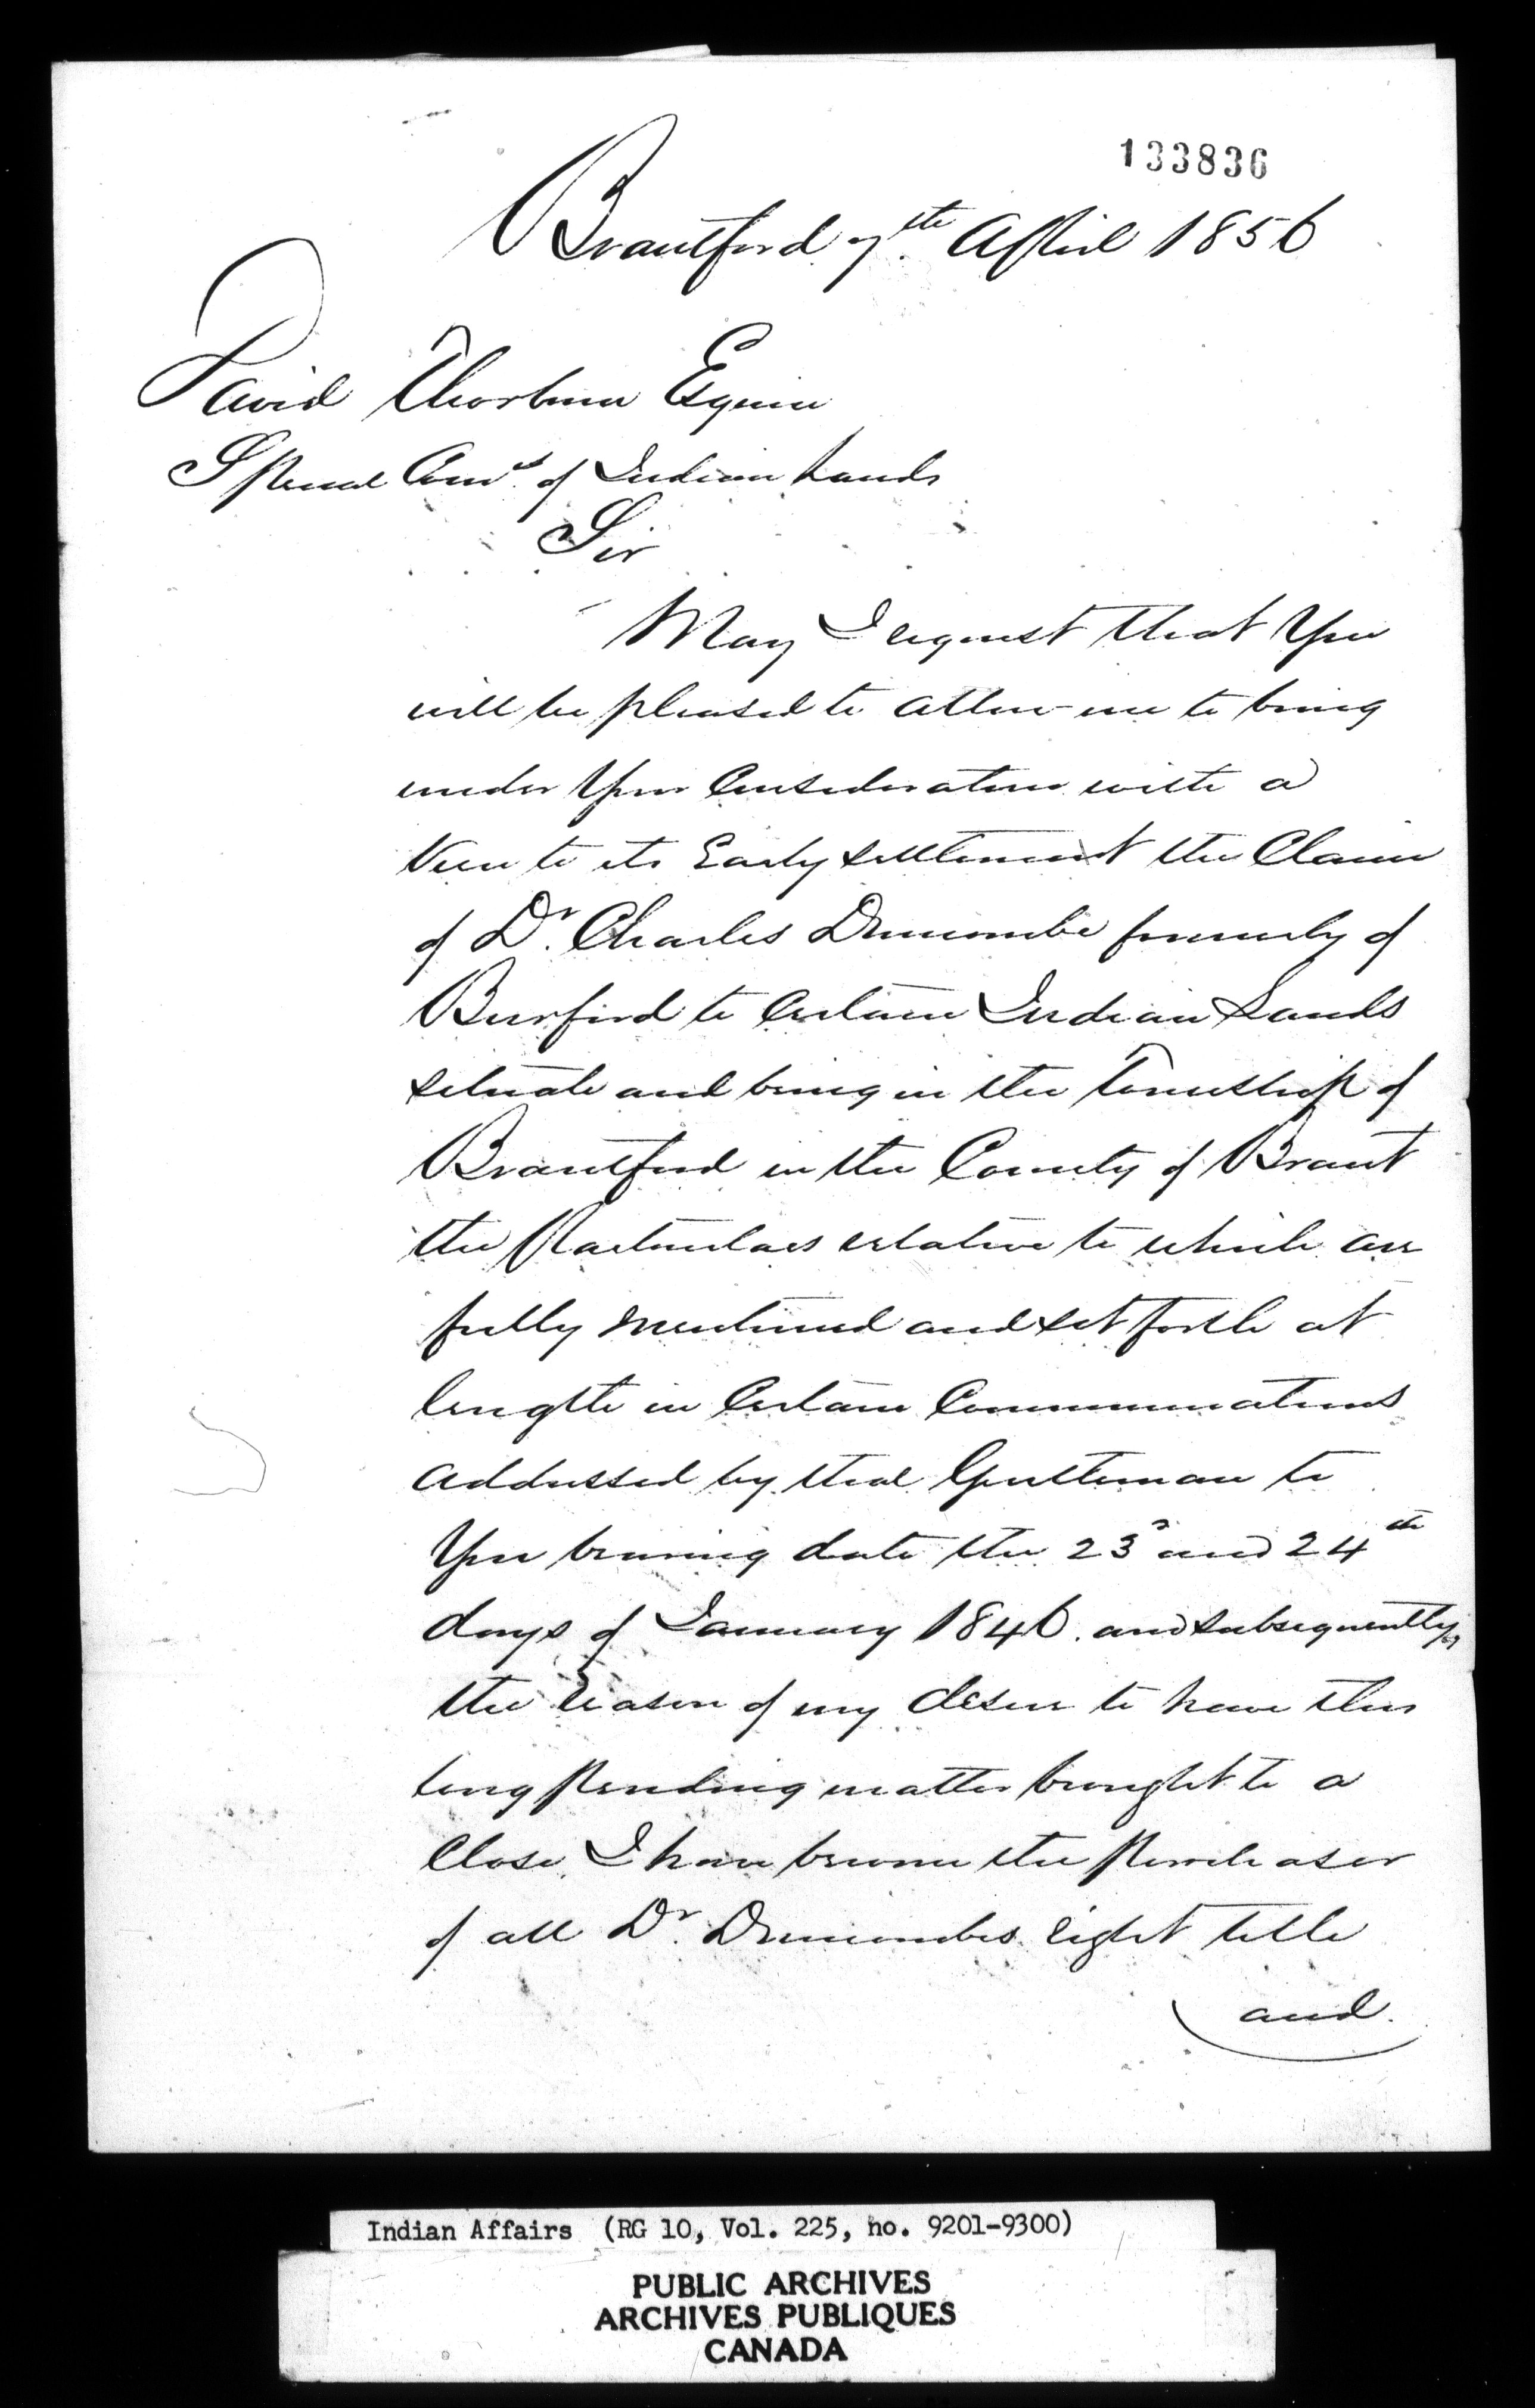 133836
Brantford 7th April 1856
David Thorburn Esquire
Special Comr of Indian Lands
Sir
May I request that You
will be pleased to allow me to bring
under Your Consideration with a
View to its Early settlement the Claim
of Dr. Charles Duncombe formerly of
Burford to Certain Indian Lands
situate and being in the Township of
Brantford in the County of Brant
the Particulars relative to which are
fully mentioned and set forth at
length in Certain Communications
addressed by that Gentleman to
You bearing date the 23d and 24th
days of January 1846. and subsequently,
the reason of my desire to have this
long pending matter brought to a
Close, I have become the purchaser
of all Dr. Duncombes right title
and.
Indian Affairs (RG 10, Vol. 225, no. 9201-9300)
PUBLIC ARCHIVES
ARCHIVES PUBLIQUES
CANADA